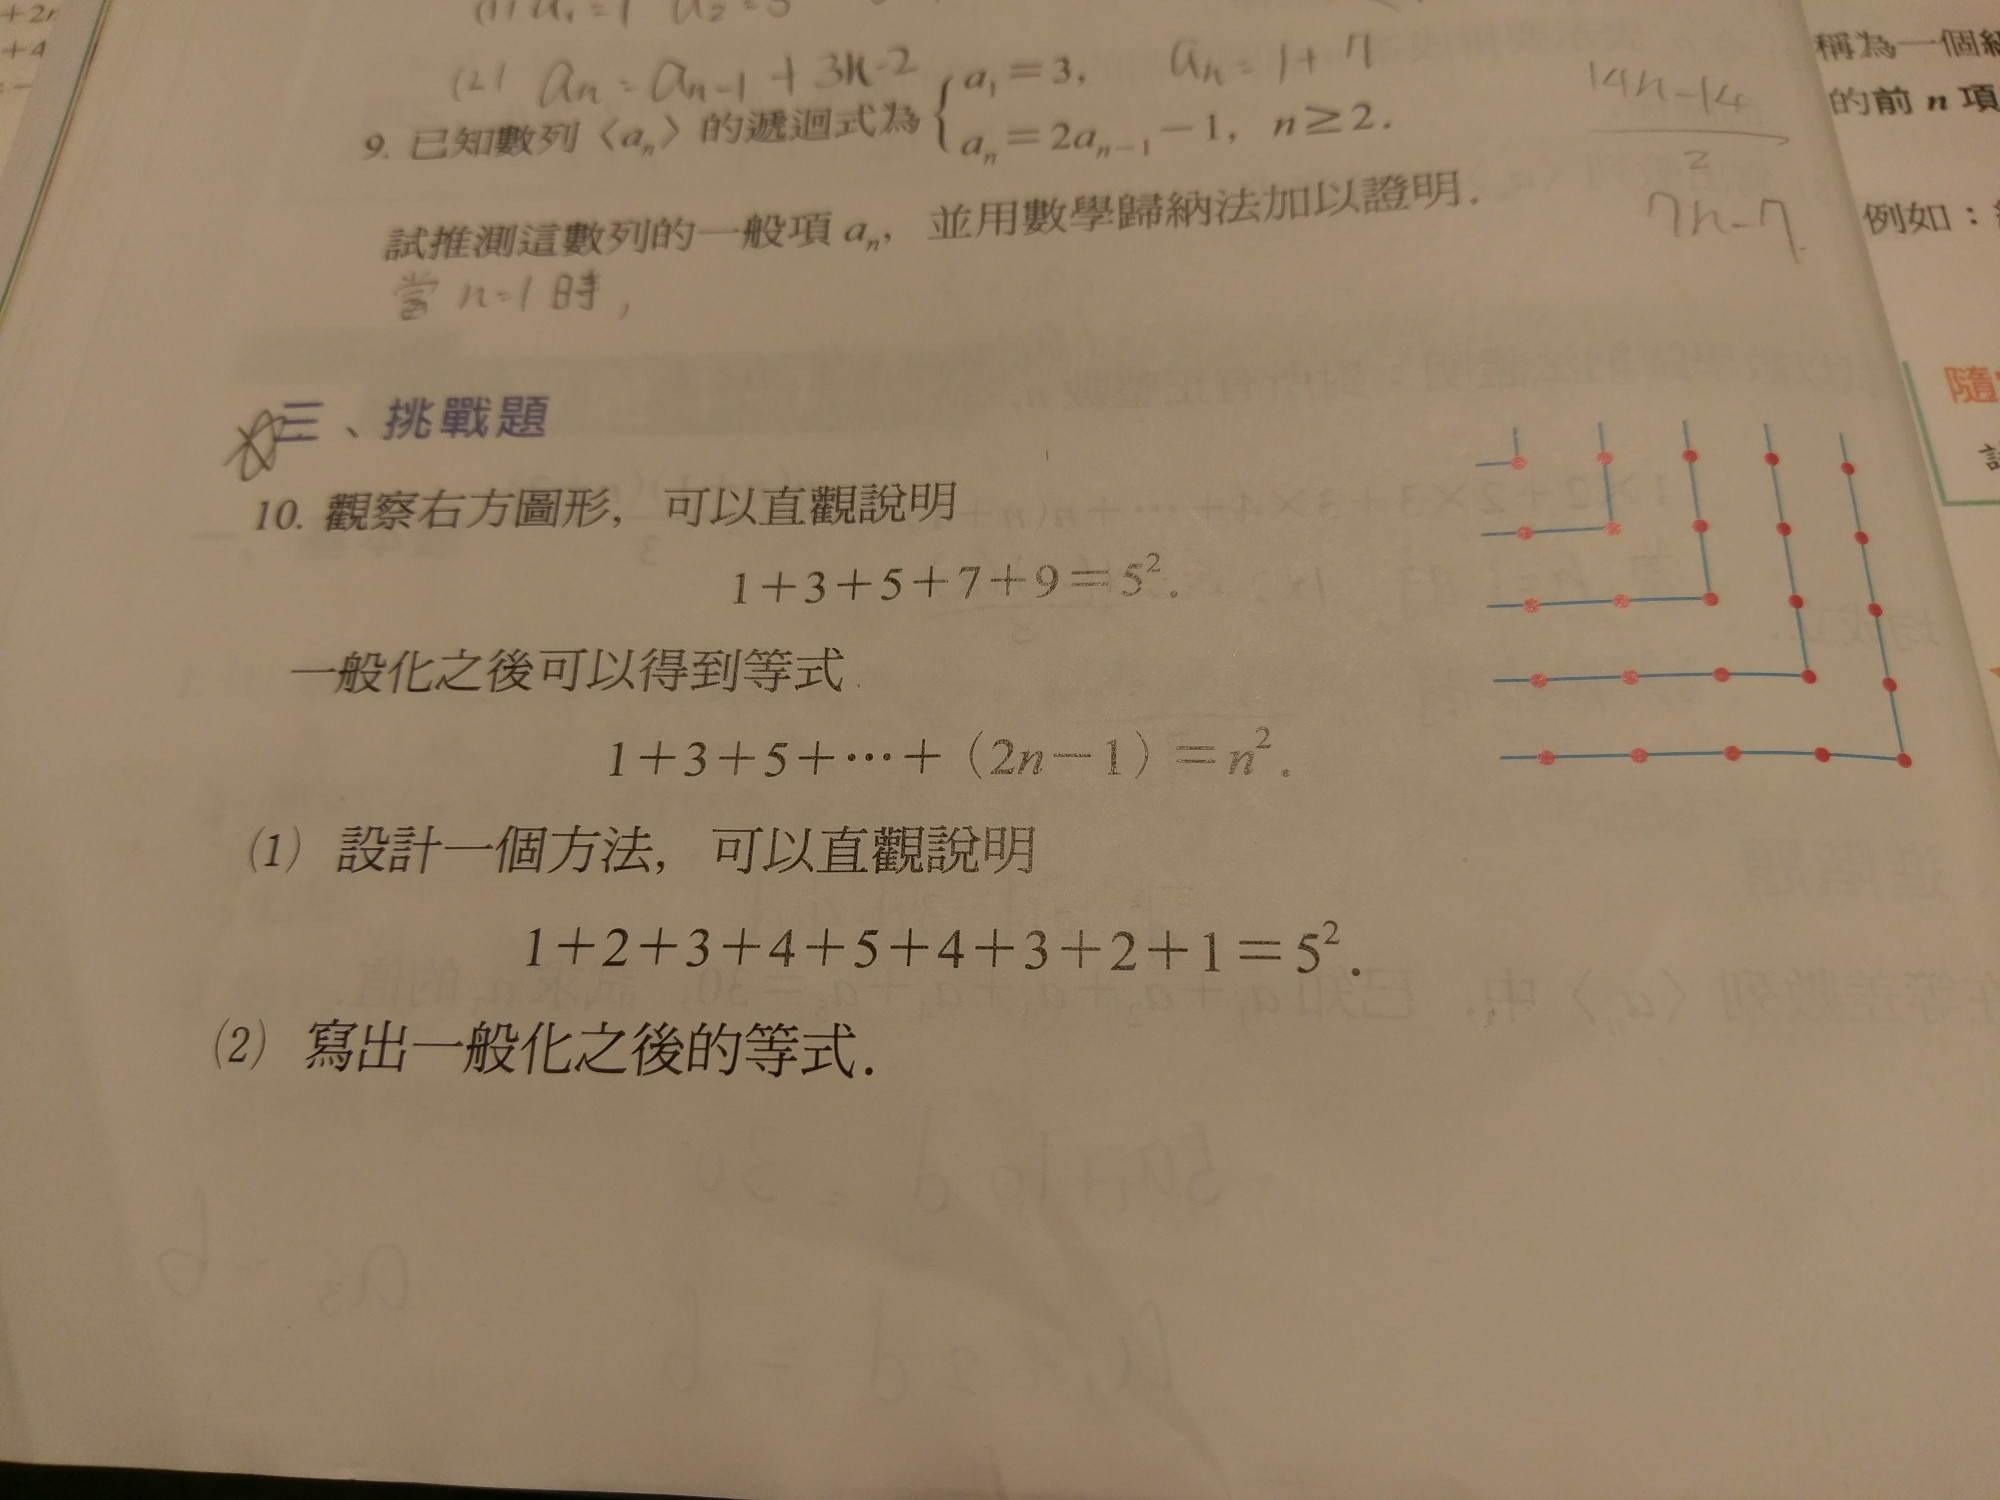 +2n
+4
(1) a₁=1 a₂=3
(2) aₙ=aₙ₋₁+3n-2
aₙ=1+7
14n-14
2
7n-7
9. 已知數列〈aₙ〉的遞迴式為 { a₁=3,
aₙ=2aₙ₋₁-1, n≥2.
試推測這數列的一般項 aₙ, 並用數學歸納法加以證明.
當 n=1 時,
三、挑戰題
10. 觀察右方圖形, 可以直觀說明
1+3+5+7+9=5².
一般化之後可以得到等式
1+3+5+⋯+(2n-1)=n².
(1) 設計一個方法, 可以直觀說明
1+2+3+4+5+4+3+2+1=5².
(2) 寫出一般化之後的等式.
稱為一個
的前 n 項
例如：
隨